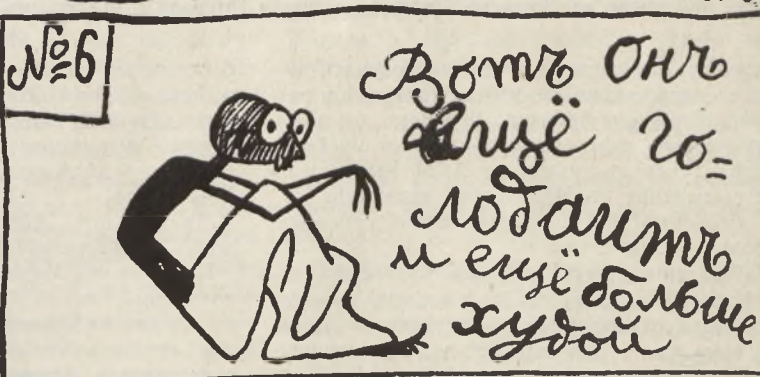 №6
Вотъ Онъ
ещё го=
лодаитъ
и ещё больше
худой